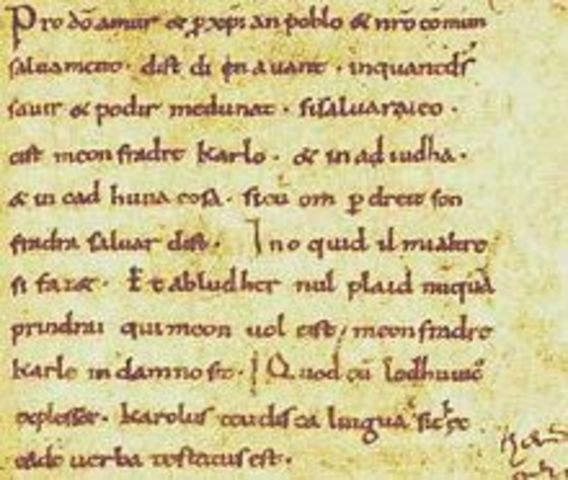 Pro dõ amur & ꝑ xp̃ian poblo & nr̃o cõmun
saluament. dist di en auant. inquantds̃
sauir & podir medunat. sisaluaraieo.
cist meon fradre karlo. & in ad iudha.
& in cad huna cosa. sicũ om ꝑ dreit son
fradra saluar dist. Ino quid il mialtre
si faz&. Et abludher nul plaid nũquã
prindrai qui meon uol cist, meon fradre
karle in damno sit. Quod cũ lodhuuic᷒
explesset. karolus teudisca lingua sic hec
eade uerba testatus est.